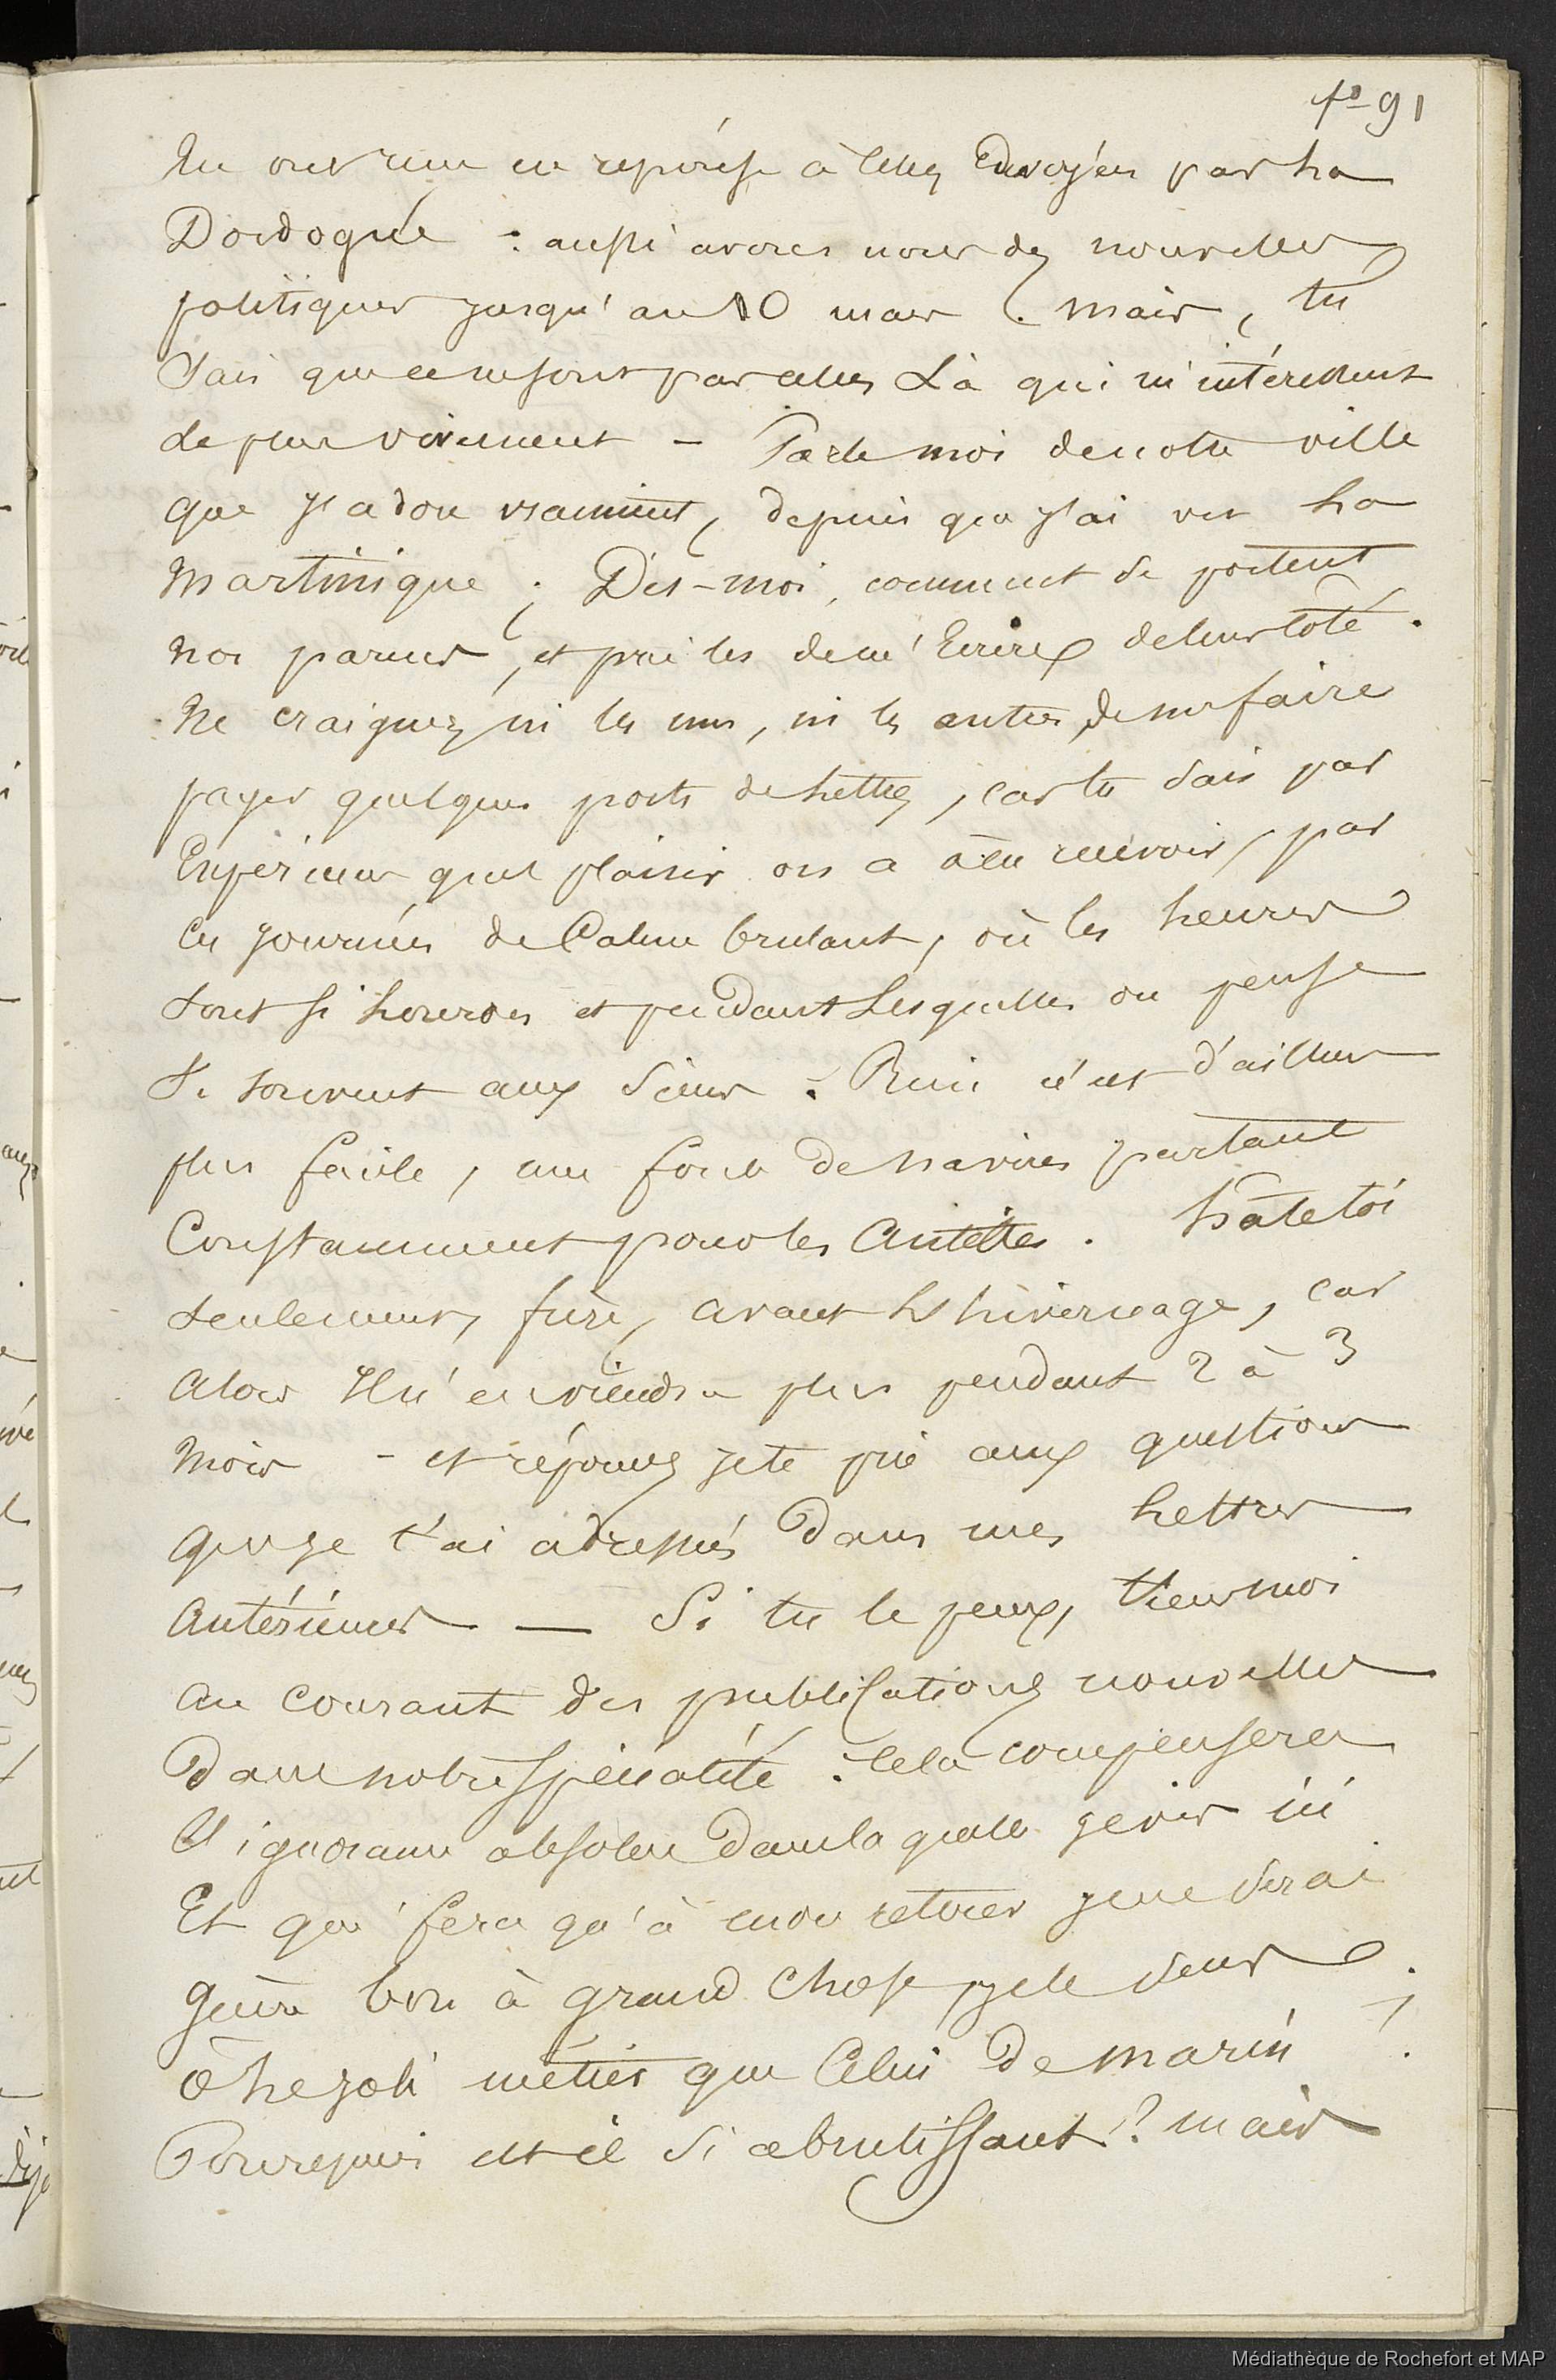 fo 91
en ont reçu en réponse à celles Envoyées par La
Dordogne : aussi avons nous des nouvelles
politiques jusqu'au 10 mars. Mais, tu
Sais que ce ne sont pas celles Là qui m'intéressent
le plus vivement – Parle moi de notre ville
que J'adore vraiment, depuis que j'ai vu La
Martinique ; Dis-moi, comment se portent
nos parents, et prie les de m'Ecrire de leur côté.
Ne craignez ni les uns, ni les autres, de me faire
payer quelques ports de Lettres, car tu sais par
Expérience quel plaisir on a à en recevoir, par
ces journées de Calme brulant, où les heures
sont si Lourdes et pendant Lesquelles on pense
si souvent aux siens. Rien n'est d'ailleurs
plus facile, une foule de navires partant
Constamment pour les Antilles. Hâte toi
seulement, frère, avant L'hivernage, car
alors Il n'en viendra plus pendant 2 à 3
mois – et réponds je te prie aux questions
que je t'ai adressées dans mes Lettres
Antérieures — Si tu le peux, tiens moi
au courant des publications nouvelles
dans notre spécialité : cela compensera
L'ignorance absolue dans laquelle je vis ici
Et qui fera qu'à mon retour je ne serai
guère bon à grand chose, je le sens
ô Le joli métier que Celui de marin !
Pourquoi est il si abrutissant ? mais
Médiathèque de Rochefort et MAP